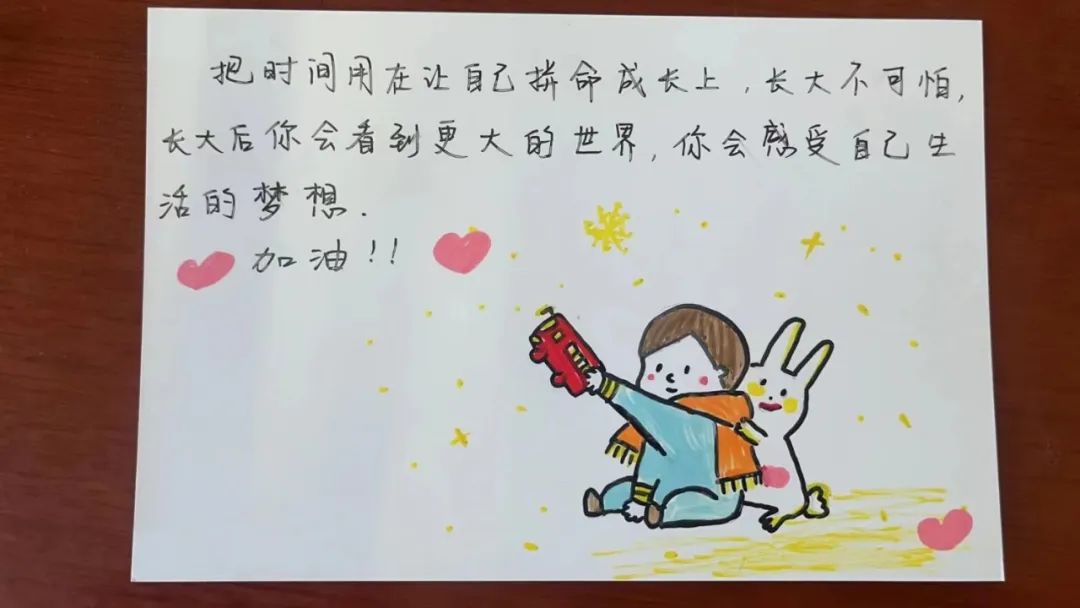 把时间用在让自己拼命成长上,长大不可怕,
长大后你会看到更大的世界,你会感受自己生
活的梦想.
加油!!